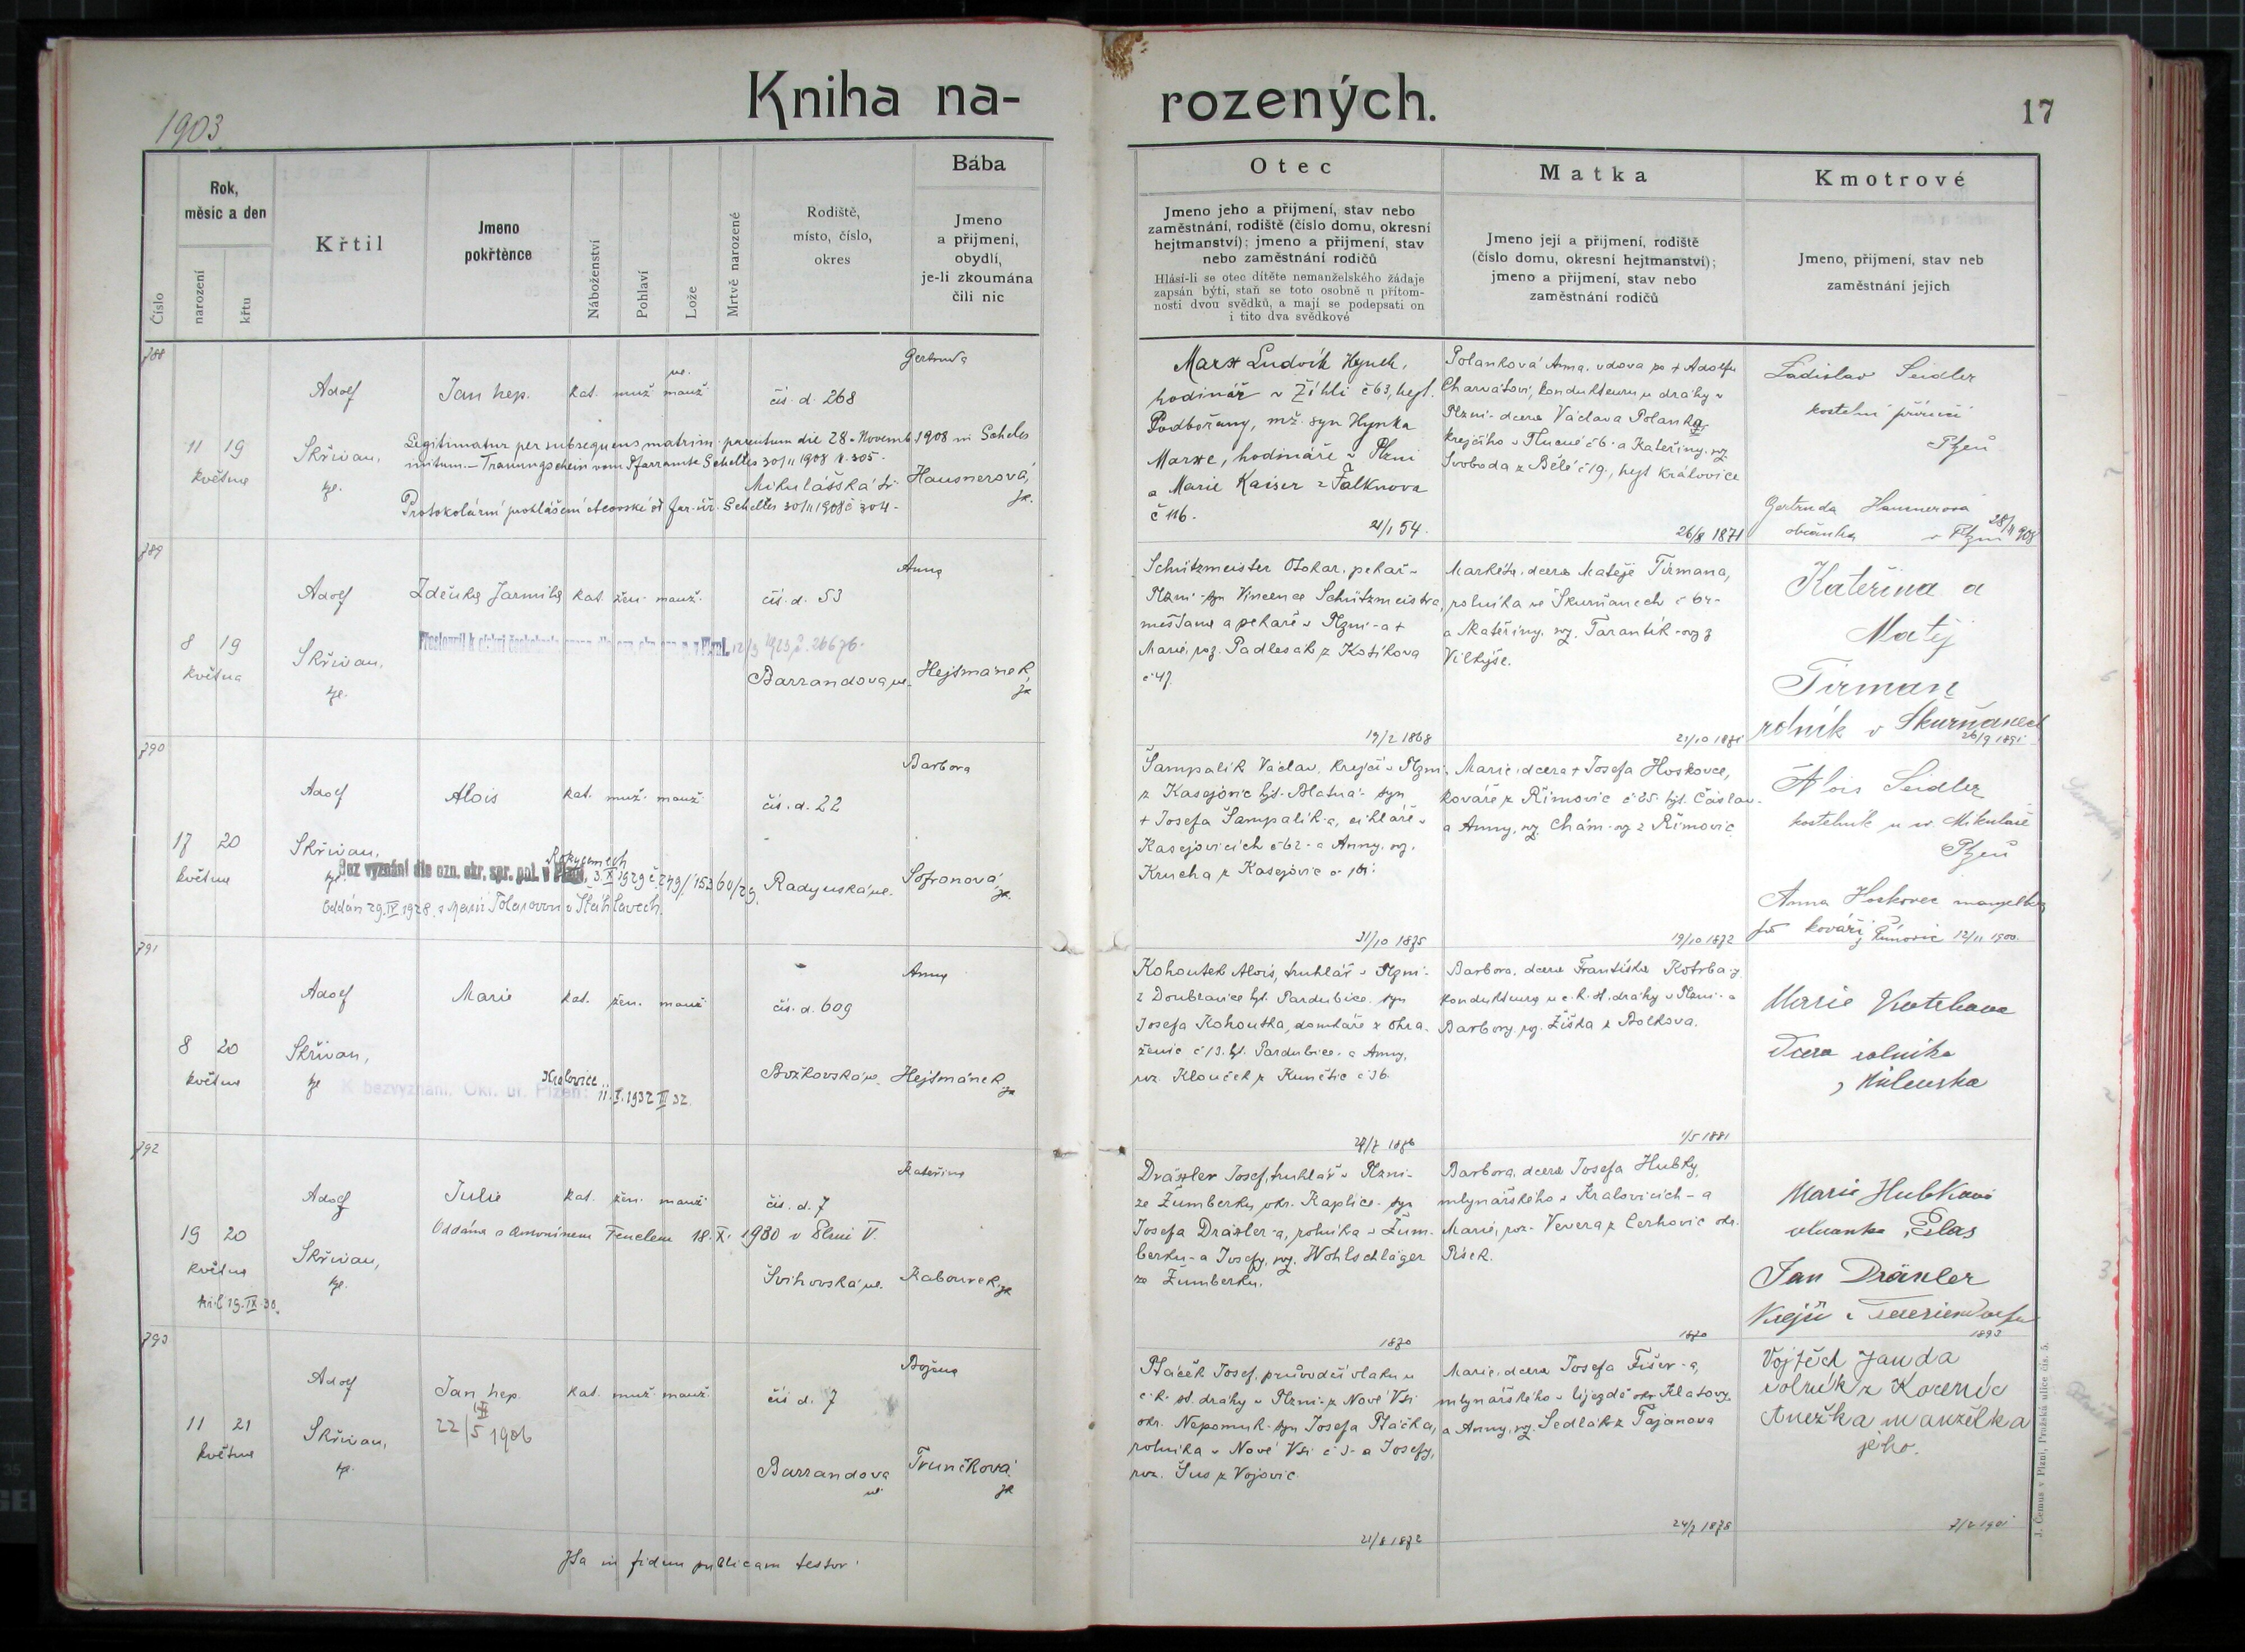 Kniha na-
rozených.
1903
17
Číslo
Rok,
měsíc a den
narození
křtu
Křtil
Jmeno
pokřtěnce
Náboženství
Pohlaví
Lože
Mrtvě narozené
Rodiště,
místo, číslo,
okres
Bába
Jmeno
a přijmení,
obydlí,
je-li zkoumána
čili nic
Otec
Jmeno jeho a přijmení, stav nebo
zaměstnání, rodiště (číslo domu, okresní
hejtmanství); jmeno a přijmení, stav
nebo zaměstnání rodičů
Hlásí-li se otec dítěte nemanželského žádaje
zapsán býti, staň se toto osobně u přítom-
nosti dvou svědků, a mají se podepsati on
i tito dva svědkové
Matka
Jmeno její a přijmení, rodiště
(číslo domu, okresní hejtmanství);
jmeno a přijmení, stav nebo
zaměstnání rodičů
Kmotrové
Jmeno, přijmení, stav neb
zaměstnání jejich
788
11 19
května
Adolf
Skřivan,
Jan nep.
kat. muž. manž.
ne.
čís. d. 268
Mikulášská tř.
Gertruda
Hausnerová,
Legitimatur per subsequens matrim. parentum die 28. Novemb. 1908 in Scheles
initum. - Trauungschein vom Pfarramte Schelles 30/11 1908 č. 305.
Protokolární prohlášení otcovské od far. úř. Schelles 30/11 1908 č 304.
Marx Ludvík Hynek,
hodinář v Žihli č 63, hejt.
Podbořany, mž. syn Hynka
Marxe, hodináře v Plzni
a Marie Kaiser z Falknova
č 116.
21/1 54.
Polanková Anna, vdova po + Adolfu
Charvátovi, kondukteuru u dráhy v
Plzni - dcera Václava Polanky
krejčího v Hlucné č 6. a Kateřiny, roz.
Svoboda z Bělé č 19., hejt Kralovice
26/8 1871
Ladislav Seidler
kostelní
Plzeň
Gertruda Hausnerova
občanka v Plzni
28/11 908
789
8 19
května
Adolf
Skřivan,
Zdeňka Jarmila
kat. žen. manž.
čís. d. 53
Barrandova ul.
Anna
Hejtmánek,
12/3 1923 č. 20676.
Schützmeister Otokar, pekař v
Plzni - syn Vincence Schützmeistra,
měšťana a pekaře v Plzni - a +
Marie, roz. Padlesak z Kotíkova
č 47.
19/2 1868
Markéta, dcera Matěje Tirmana,
rolníka ve Skurňanech č 64 -
a Kateřiny, roz. Tarantík - roz z
Vlkýše.
Kateřina a
Matěj
Tirman
rolník v Skurňanech
26/9 1891
790
17 20
května
Adolf
Skřivan,
Alois
kat. muž. manž.
čís. d. 22
Radyňská ul.
Barbora
Sofronová
Bez vyznání dle ozn. okr. spr. pol. v Plzni
Rokycanech
3. X 1929 č. 249/15360/29.
Oddán 29. IV 1928 s Marií Tolarovou v Šťáhlavech.
Šampalík Václav, krejčí v Plzni
z Kasejovic hjt. Blatná - syn
+ Josefa Šampalík-a, cihláře v
Kasejovicích č 62 - a Anny, roz.
Krucha z Kasejovic č 101.
31/10 1875
Marie, dcera + Josefa Hoskovce,
kováře z Římovic č 25. hjt. Čáslav -
a Anny, roz. Chám - roz z Římovic
19/10 1872
Alois Seidler
kostelník u sv. Mikuláše
Plzeň
Anna Hoskovec manželka
po kováři z Římovic 12/11 1900.
791
8 20
května
Adolf
Skřivan,
Marie
kat. žen. manž.
čís. d. 609
Božkovská ul.
Anna
Hejtmánek
Kralovice
K bezvyznání. Okr. úř. Plzeň:
11. X. 1932 32.
Kohoutek Alois, truhlář v Plzni -
z Doubravice hjt. Pardubice - syn
Josefa Kohoutka, domkáře z Ohra-
ženic č 13. hjt. Pardubice - a Anny,
roz. Klouček z Kunětic č 36.
Barbora, dcera Františka Kotrba-y
kondukteura u c. k. st. dráhy v Plzni - a
Barbory, roz. Žiška z Bolkova.
1/5 1881
Marie
Dcera rolníka
792
19 20
května
Adolf
Skřivan,
Julie
kat. žen. manž.
čís. d. 7
Švihovská ul.
Kateřina
Kabourek,
Oddána s Antonínem Fenclem 18. X. 1930 v Plzni V.
Dräxler Josef, truhlář v Plzni -
ze Žumberku, okr. Kaplice - syn
Josefa Dräxler-a, rolníka v Žum-
berku - a Josefy, roz. Wohlschläger
ze Žumberku.
1870
Barbora, dcera Josefa Hubky,
mlynářského v Kralovicích - a
Marie, roz. Vevera z Cerhovic okr.
Písek.
Marie Hubková
Jan Dräxler
1893
793
11 21
května
Adolf
Skřivan,
Jan nep.
22/5 1906
kat. muž. manž.
čís d. 7
Barrandova
ul.
Božena
Trunčková
Ptáček Josef, průvodčí vlaku u
c. k. st. dráhy v Plzni - z Nové Vsi
okr. Nepomuk - syn Josefa Ptáčka,
rolníka v Nové Vsi č 3 - a Josefy,
roz. Šus z Vojovic.
21/8 1872
Marie, dcera Josefa Fišer-a,
mlynářského v Újezdě okr. Klatovy
a Anny, roz. Sedlák z Tajanova
24/7 1878
Vojtěch Janda
rolník z Kocenic
Anežka manželka
jeho.
7/2 1901
Ita in fidem publicam testor:
J. Černus v Plzni, Pražská ulice čís. 5.